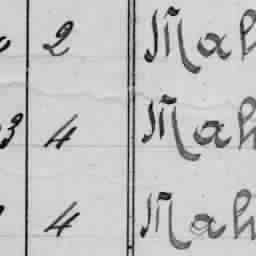 2 Mah
3 4 Mah
4 Mah